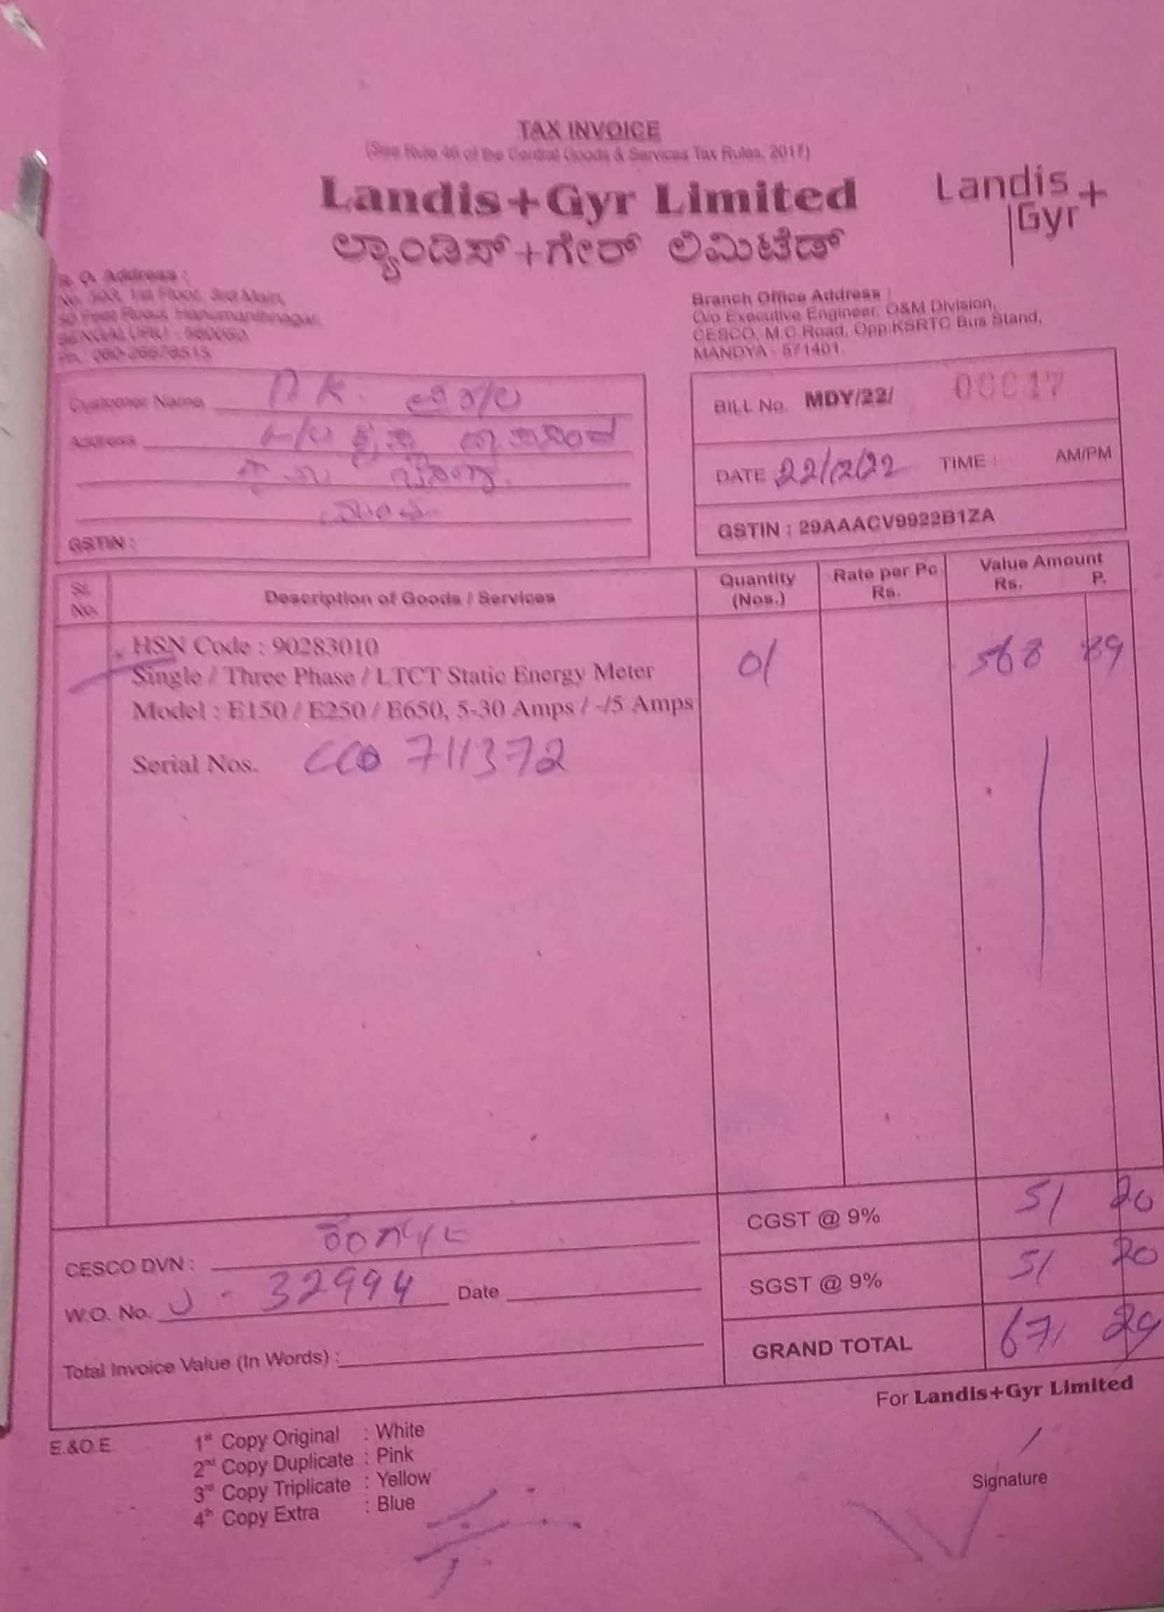 TAX INVOICE
(See Rule 46 of the Central Goods & Services Tax Rules, 2017)
Landis+Gyr Limited
ಲ್ಯಾಂಡಿಸ್+ಗೇರ್ ಲಿಮಿಟೆಡ್
Landis
Gyr+
R. O. Address :
No. 503, 1st Floor, 3rd Main,
50 Feet Road, Hanumanthnagar,
BENGALURU - 560050
Branch Office Address :
O/o Executive Engineer, O&M Division,
CESCO, M.C.Road, Opp.KSRTC Bus Stand,
MANDYA - 571401.
Customer Name
Address
GSTIN :
BILL No. MDY/22/ 00017
DATE 22/12/22 TIME : AM/PM
GSTIN : 29AAACV9922B1ZA
Sl. No. Description of Goods / Services Quantity (Nos.) Rate per Pc Rs. Value Amount Rs. P.
HSN Code : 90283010 01 568 89
Single / Three Phase / LTCT Static Energy Meter
Model : E150 / E250 / E650, 5-30 Amps / -/5 Amps
Serial Nos. CCO 711372
CGST @ 9% 51 20
CESCO DVN :
SGST @ 9% 51 20
W.O. No. J - 32994 Date
GRAND TOTAL 671 29
Total Invoice Value (In Words) :
For Landis+Gyr Limited
E.&O.E.
1st Copy Original : White
2nd Copy Duplicate : Pink
3rd Copy Triplicate : Yellow
4th Copy Extra : Blue
Signature